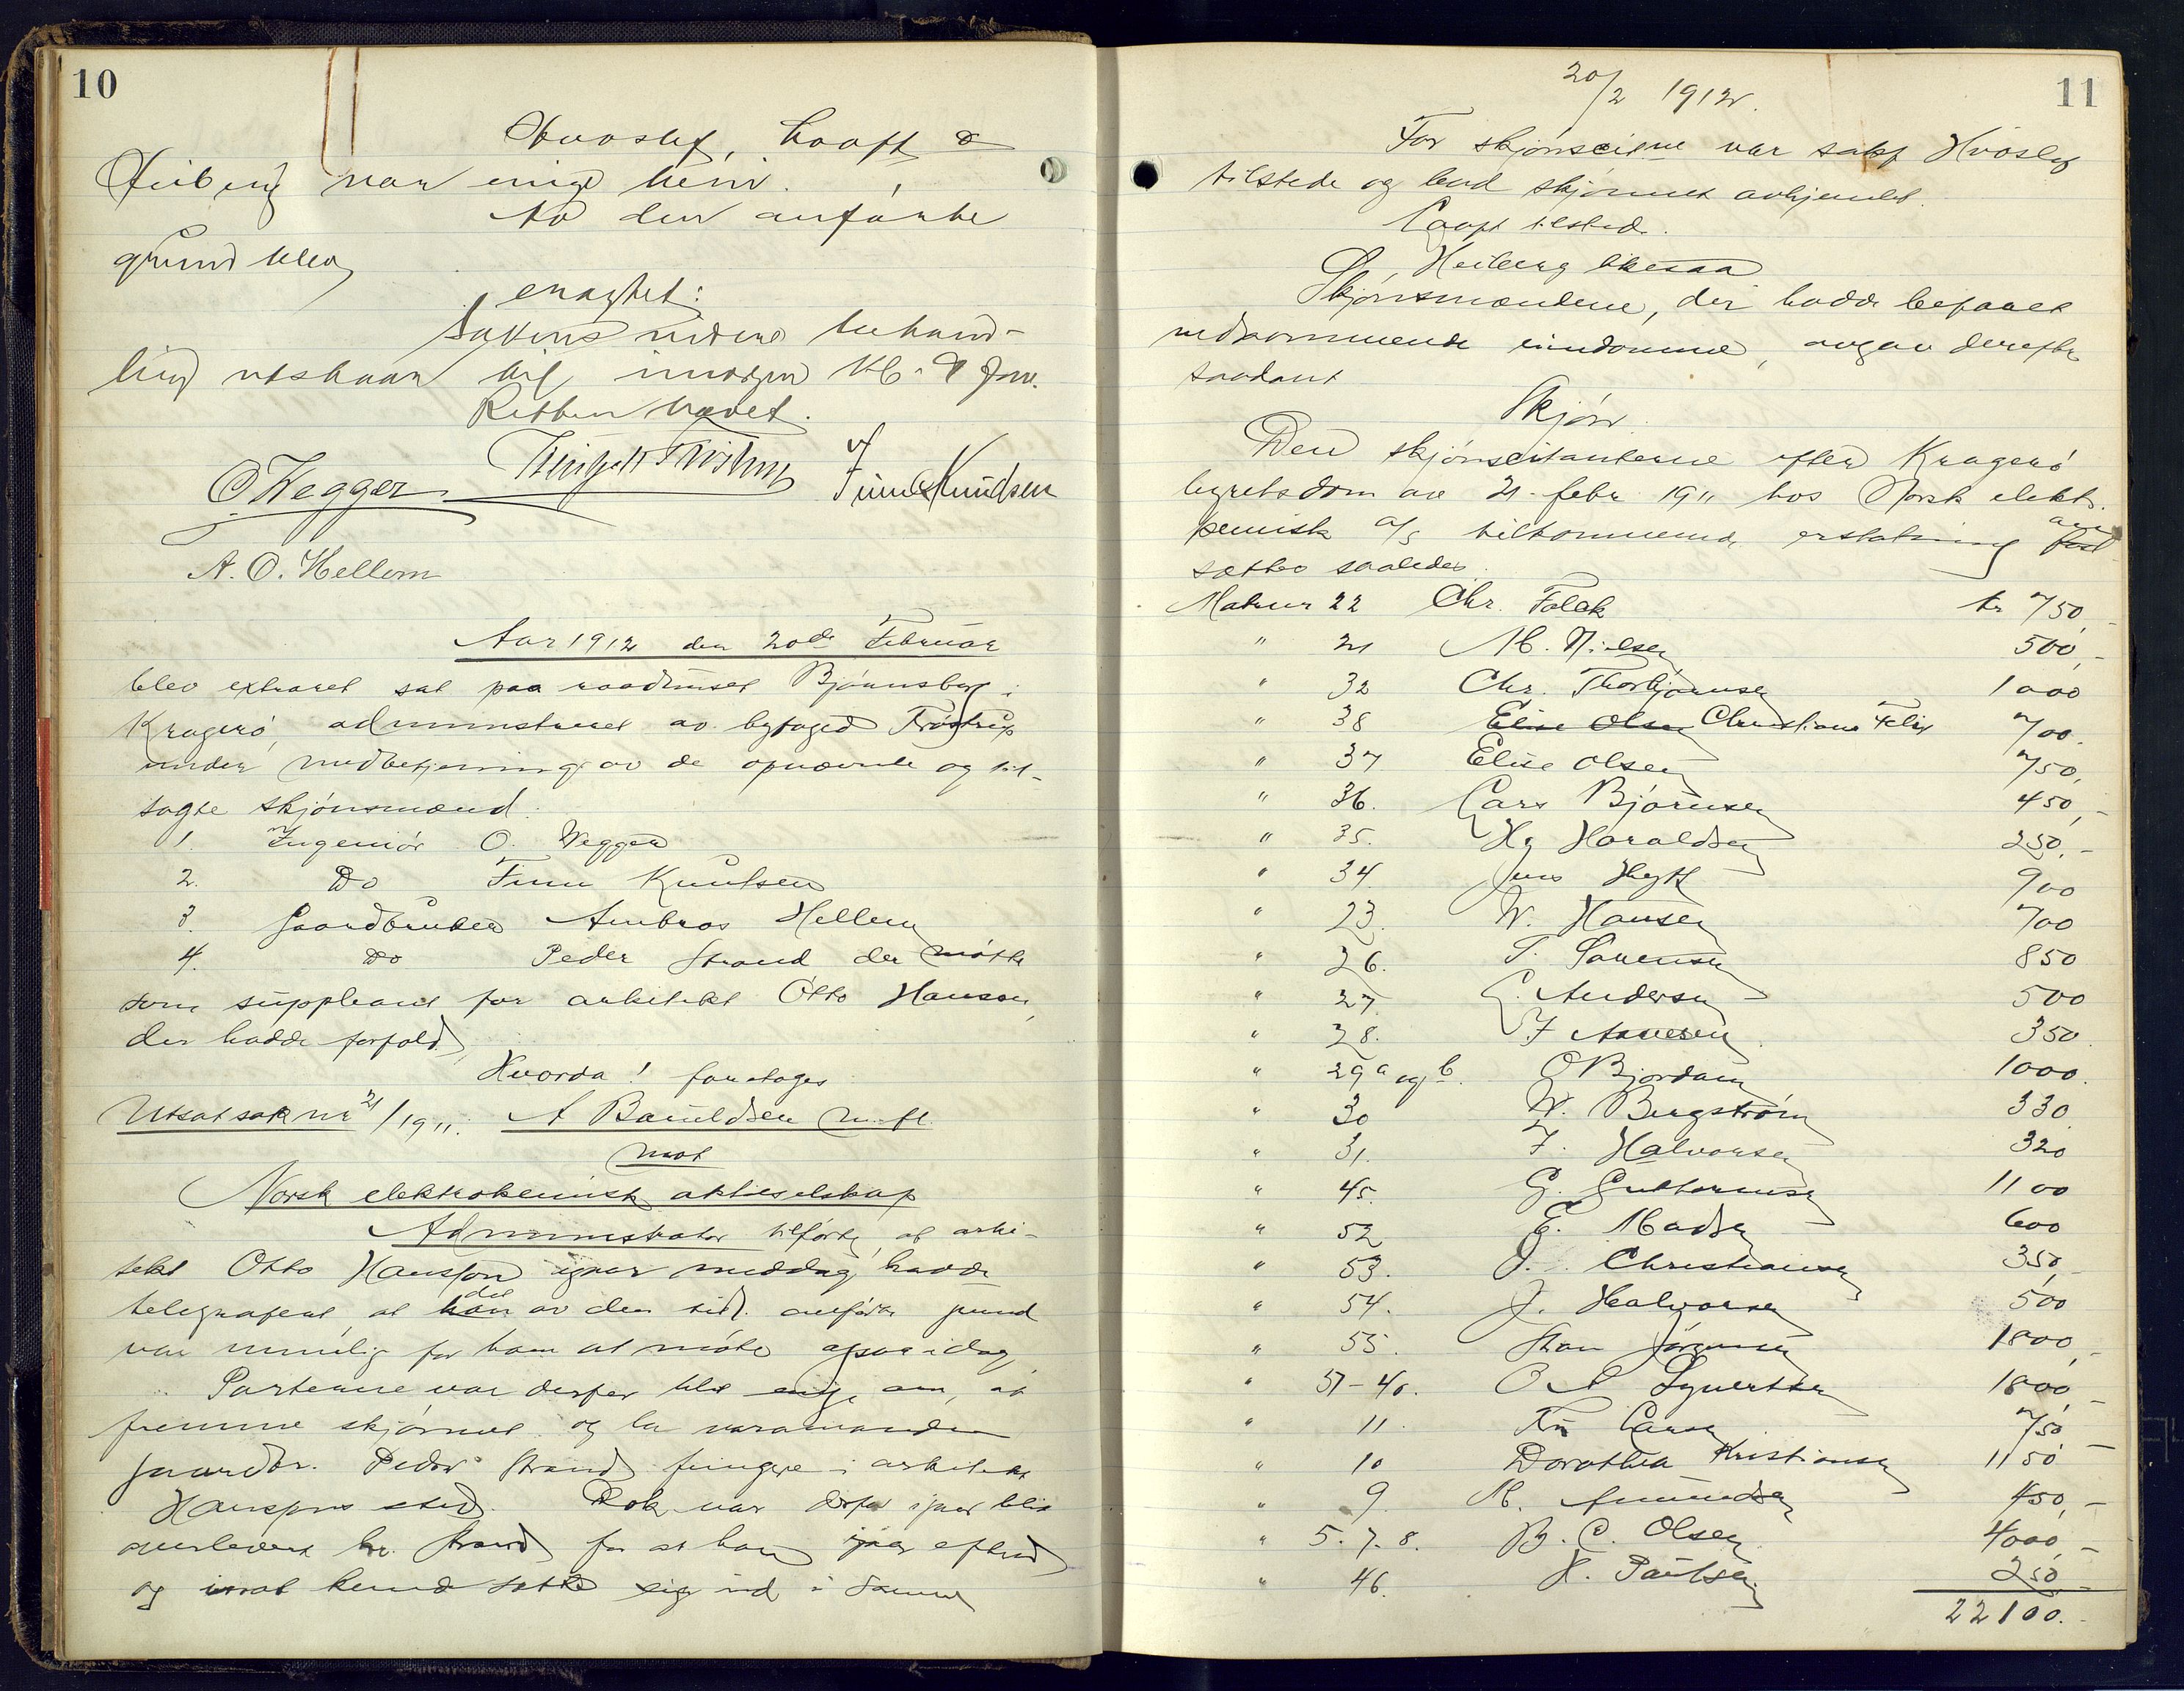 10
Hvoslef, Cooft &
Heiberg var enige heri.
Av den anførte
grund blev
eragtet:
Sakens videre behand-
ling utstaar til imorgen Kl. 9 Fm.
Retten hævet.
O Wegger Finn Knudsen
A. O. Hellem
Aar 1912 den 20de Februar
blev extraret sat paa raadhuset Bjørnsborg i
Kragerø, administreret av byfoged Trøstrup
under medbetjening av de opnævnte og til-
sagte skjønsmænd:
1. Ingeniør O. Wegger
2. Do Finn Knutsen
3. Gaardbruker Ambros Hellem
4. Do Peder Strand der møtte
som suppleant for arkitekt Otto Hansson,
der hadde forfald.
Hvorda! foretoges
Utsat sak nr 21/1911. A Bauldsen m. fl.
mot
Norsk elektrokemisk aktieselskap
Administrator tilførte, at arki-
tekt Otto Hansson igaar middag havde
telegrafert, at det av den anførte grund
var umulig for ham at møte idag.
Parterne var derfor blit enige om, at
fremme skjønnet og la varamanden
gaardbr. Peder Strand fungere i arkitekt
Hanssons sted. Dok var derfor igaar blit
overlevert hr. Strand for at han igaar efterm
og inat kunde sætte sig ind i samme
11
20/2 1912.
For skjønsciterne var sakf Hvoslef
tilstede og lend skjønnet avhjemlet.
Cooft tilstede.
Heiberg likesaa
Skjønsmændene, der hadde befaret
vedkommende eiendomme, avgav derefter
saadant
Skjøn
Den skjønscitanterne efter Kragerø
byretsdom av 21. febr 1911 hos Norsk elektr.
kemisk A/S tilkommende erstatning an
sættes saaledes
Matrnr 22 Chr. Falck kr 750,-
" 21 M. Nielsen 500,-
" 32 Chr. Thorbjørnsen 1000
" 38 Elise Olsen Christiane Felix 700.
" 37 Elise Olsen 750,
" 36. Lars Bjørnsen 450,-
" 35. Hg Haraldsen 250,-
" 34. Jens 900
" 23. W. Hansen 700
" 26. T. Sørensen 850
" 27. C. Andersen 500
" 28. F Aanesen 350
" 29 a og b. O Bjordam 1000.
" 30 W. Bergstrøm 330
" 31. F. Halvorsen 320
" 45. G. Guttormsen 1100
" 52 E. Madsen 600
" 53. J. Christiansen 350,-
" 54. J. Halvorsen 500
" 55. Jørgensen 1800,-
" 51-40. O A Syvertsen 1800,-
" 11. Larsen 750
" 10 Dorothea Kristiansen 1150
" 9. M. Amundsen 450,-
" 5. 7. 8. B. C. Olsen 4000,-
" 46. H. Paulsen 250,-
22100.-